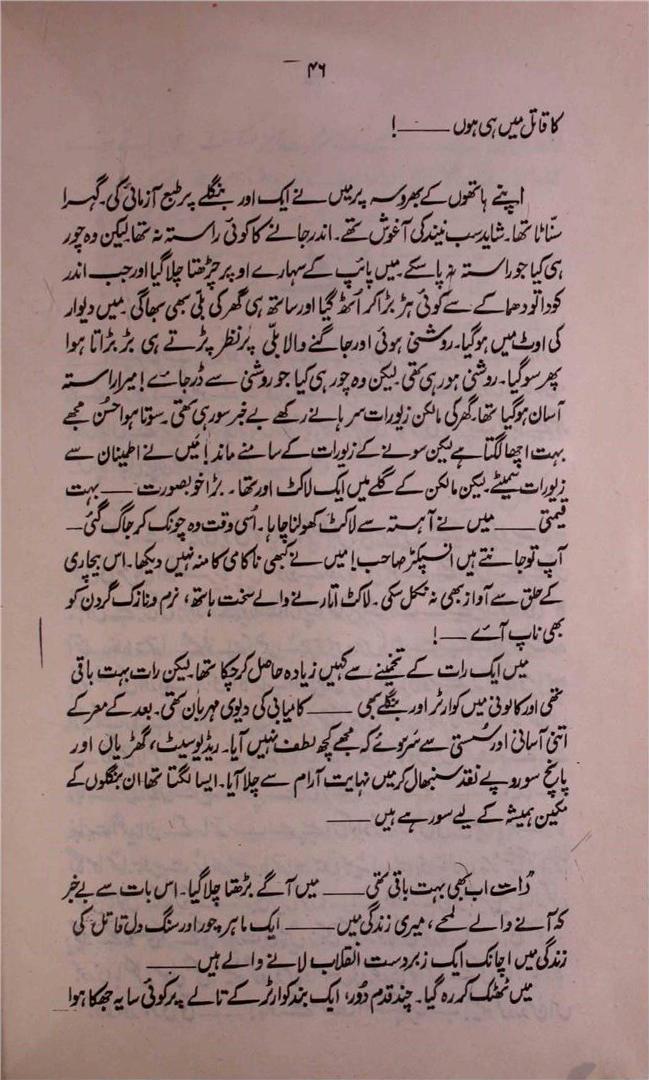 ۴۶
کا قاتل میں ہی ہوں ـــــ !
اپنے ہاتھوں کے بھروسہ پر میں نے ایک اور بنگلے پر طبع آزمائی کی۔ گہرا
سنّاٹا تھا۔ شاید سب نیند کی آغوش تھے۔ اندر جانے کا کوئی راستہ نہ تھا لیکن وہ چور
ہی کیا جو راستہ نہ پا سکے۔ میں پائپ کے سہارے اوپر چڑھتا چلا گیا اور جب اندر
کودا تو دھماکے سے کوئی ہڑبڑا کر اُٹھ گیا اور ساتھ ہی گھر کی بلّی بھی بھاگی۔ میں دیوار
کی اوٹ میں ہو گیا۔ روشنی ہوئی اور جاگنے والا بلّی پر نظر پڑتے ہی بڑبڑاتا ہوا
پھر سو گیا۔ روشنی ہو رہی تھی۔ لیکن وہ چور ہی کیا جو روشنی سے ڈر جائے! میرا راستہ
آسان ہو گیا تھا۔ گھر کی مالکن زیورات سرہانے رکھے بے خبر سو رہی تھی۔ سوتا ہوا حسن مجھے
بہت اچھا لگتا ہے لیکن سونے کے زیورات کے سامنے ماند! میں نے اطینان سے
زیورات سمیٹے۔ لیکن مالکن کے گلے میں ایک لاکٹ اور تھا۔ بڑا خوبصورت ـــــ بہت
قیمتی ـــــ میں نے آہستہ سے لاکٹ کھولنا چاہا۔ اُسی وقت وہ چونک کر جاگ گئی ـــ
آپ تو جانتے ہیں انسپکٹر صاحب! میں نے کبھی ناکامی کا منہ نہیں دیکھا۔ اس بیچاری
کے حلق سے آواز بھی نہ نکل سکی۔ لاکٹ اتارنے والے سخت ہاتھ، نرم و نازک گردن کو
بھی ناپ آئے ـــــ !
میں ایک رات کے تخمینے سے کہیں زیادہ حاصل کر چکا تھا۔ لیکن رات بہت باقی
تھی اور کالونی میں کوارٹر اور بنگلے بھی ـــــ کامیابی کی دیوی مہربان تھی۔ بعد کے معرکے
اتنی آسانی اور سُستی سے سَر ہوئے کہ مجھے کچھ لطف نہیں آیا۔ ریڈیو سیٹ، گھڑیاں اور
پانچ سو روپے نقد سنبھال کر میں نہایت آرام سے چلا آیا۔ ایسا لگتا تھا ان بنگلوں کے
مکین ہمیشہ کے لیے سو رہے ہیں ـــــ
رات اب بھی بہت باقی تھی ـــــ میں آگے بڑھتا چلا گیا۔ اس بات سے بے خبر
کہ آنے والے لمحے، میری زندگی میں ـــــ ایک ماہر چور اور سنگ دل قاتل کی
زندگی میں اچانک ایک زبردست انقلاب لانے والے ہیں ـــــ
میں ٹھٹک کر رہ گیا۔ چند قدم دُور، ایک بند کوارٹر کے تالے پر کوئی سایہ جھکا ہوا